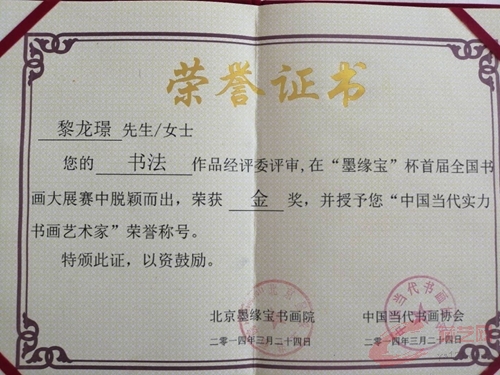 荣誉证书
黎龙璟 先生/女士
您的 书法 作品经评委评审,在“墨缘宝”杯首届全国书
画大展赛中脱颖而出，荣获 金 奖，并授予您“中国当代实力
书画艺术家”荣誉称号。
特颁此证，以资鼓励。
北京墨缘宝书画院 中国当代书画协会
二零一四年三月二十四日 二零一四年三月二十四日